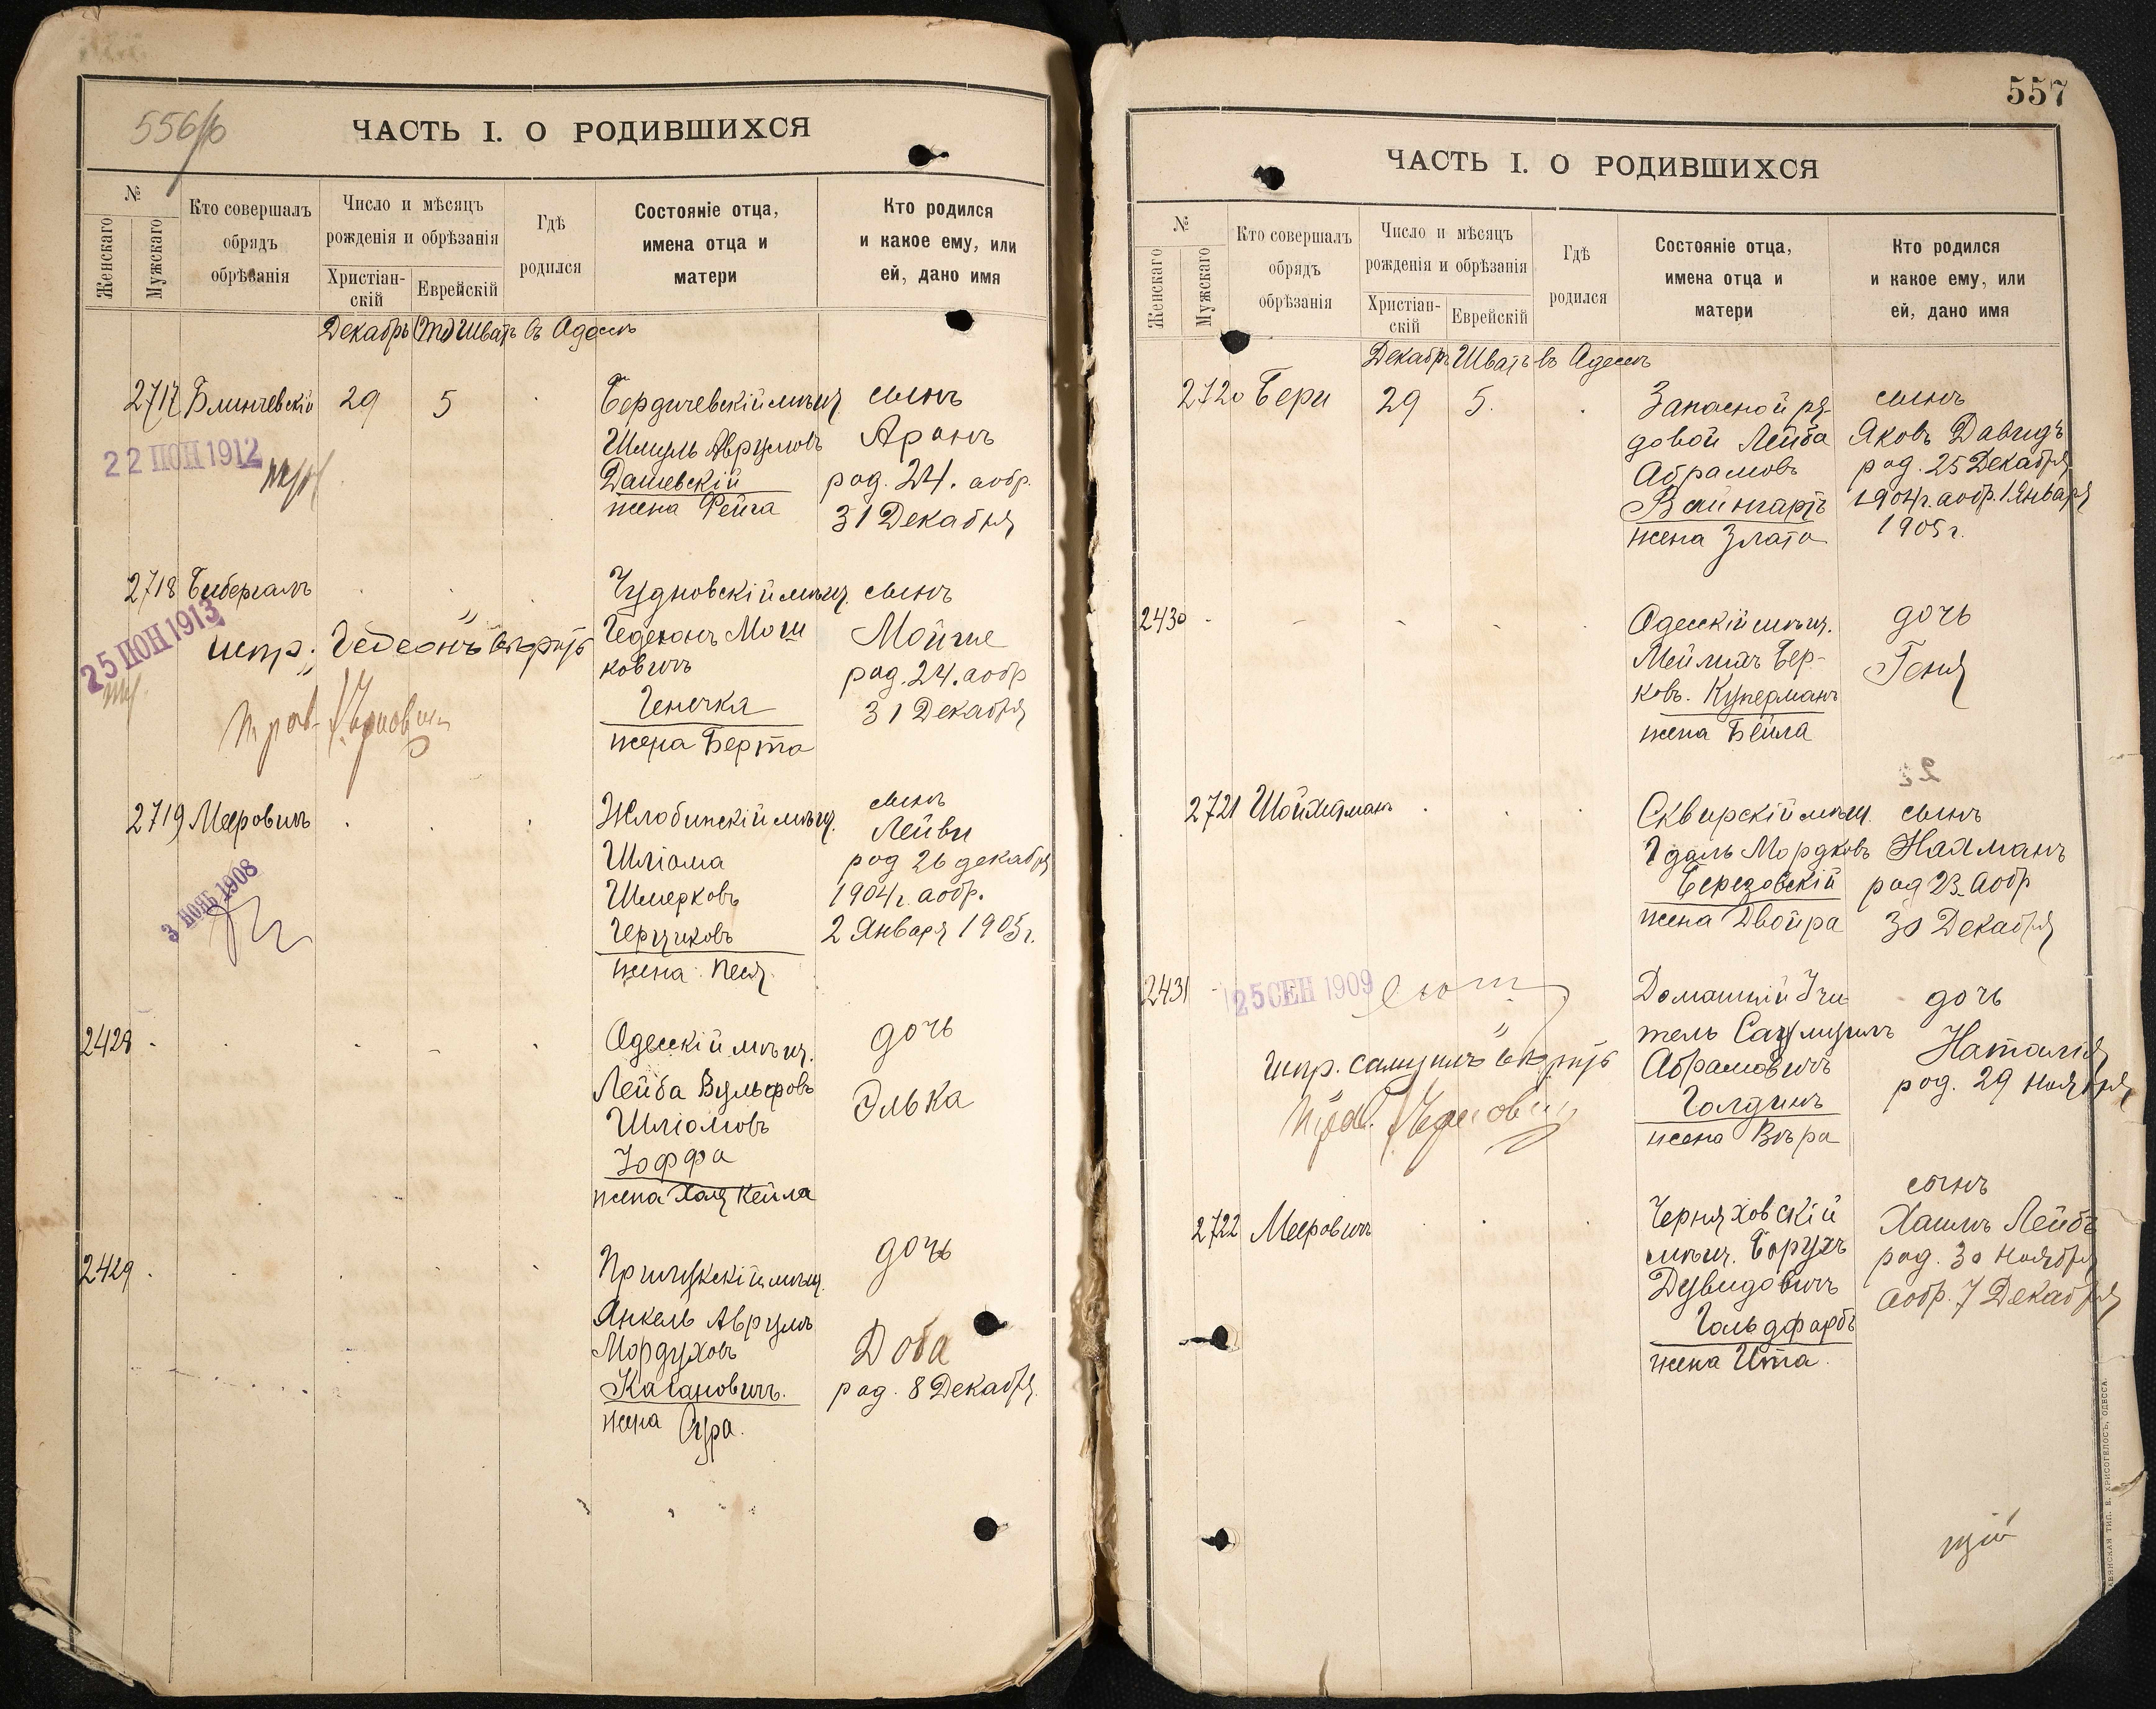 556/б
ЧАСТЬ I. О РОДИВШИХСЯ
№
Женскаго
Мужскаго
Кто совершалъ
обрядъ
обрѣзанія
Число и мѣсяцъ
рожденія и обрѣзанія
Христіан-
скій
Еврейскій
Гдѣ
родился
Состояніе отца,
имена отца и
матери
Кто родился
и какое ему, или
ей, дано имя
Декабрь Шватъ въ Одессѣ
2717 Блинчевскій 29 5 Бердичевскій мѣщ. сынъ
22 ІЮН 1912
Шмуль Аврумовъ Аронъ
Дашевскій род. 24. аобр.
жена Фейга 31 Декабря
2718 Бибергалъ Чудновскій мѣщ. сынъ
25 ІЮН 1913
испр. "Гедеонъ" вѣрить Гедеонъ Мош
ковичъ Мойше
род. 24. аобр
Генечка 31 Декабря
жена Берта
2719 Мееровичъ Жлобинскій мѣщ. сынъ
Лейви
3 НОЯБ 1908
Шліома род 26 декабря
Шмерковъ 1904 г. аобр.
Герциковъ 2 Января 1905 г.
жена Песя.
2428 Одесскій мѣщ. дочь
Лейба Вульфовъ Элька
Шліомовъ
Іоффа
жена Хая Кейла
2429 Прилукскій мѣщ. дочь
Янкель Аврумъ
Мордуховъ Доба
Кагановичъ. род. 8 Декабря.
жена Сура.
557
ЧАСТЬ I. О РОДИВШИХСЯ
№
Женскаго
Мужскаго
Кто совершалъ
обрядъ
обрѣзанія
Число и мѣсяцъ
рожденія и обрѣзанія
Христіан-
скій
Еврейскій
Гдѣ
родился
Состояніе отца,
имена отца и
матери
Кто родился
и какое ему, или
ей, дано имя
Декабрь Шватъ въ Одессѣ
2720 Бери 29 5. Запасной ря- сынъ
довой Лейба Яковъ Давидъ
Абрамовъ род. 25 Декабря
Вайнгартъ 1904 г. аобр. 1 Января
жена Злата 1905 г.
2430 Одесскій мѣщ. дочь
Мейлихъ Бер- Геня
ковъ. Куперманъ
жена Бейла
2721 Шойхетманъ Сквирскій мѣщ. сынъ
Гдаль Мордковъ Нахманъ
Березовскій род 23. аобр
жена Двойра 30 Декабря
2431 25 СЕН 1909 Домашній Учи- дочь
тель Самуилъ Наталія
испр. "Самуилъ" вѣрить Абрамовичъ род. 29 Ноября
Голдинъ
жена Вѣра
2722 Мееровичъ Черняховскій сынъ
мѣщ. Борухъ Хаимъ Лейбъ
Дувидовичъ род. 30 Ноября
Гольдфарбъ аобр. 7 Декабря
жена Ита.
ТИП. Е. ХРИСОГЕЛОСЪ, ОДЕССА